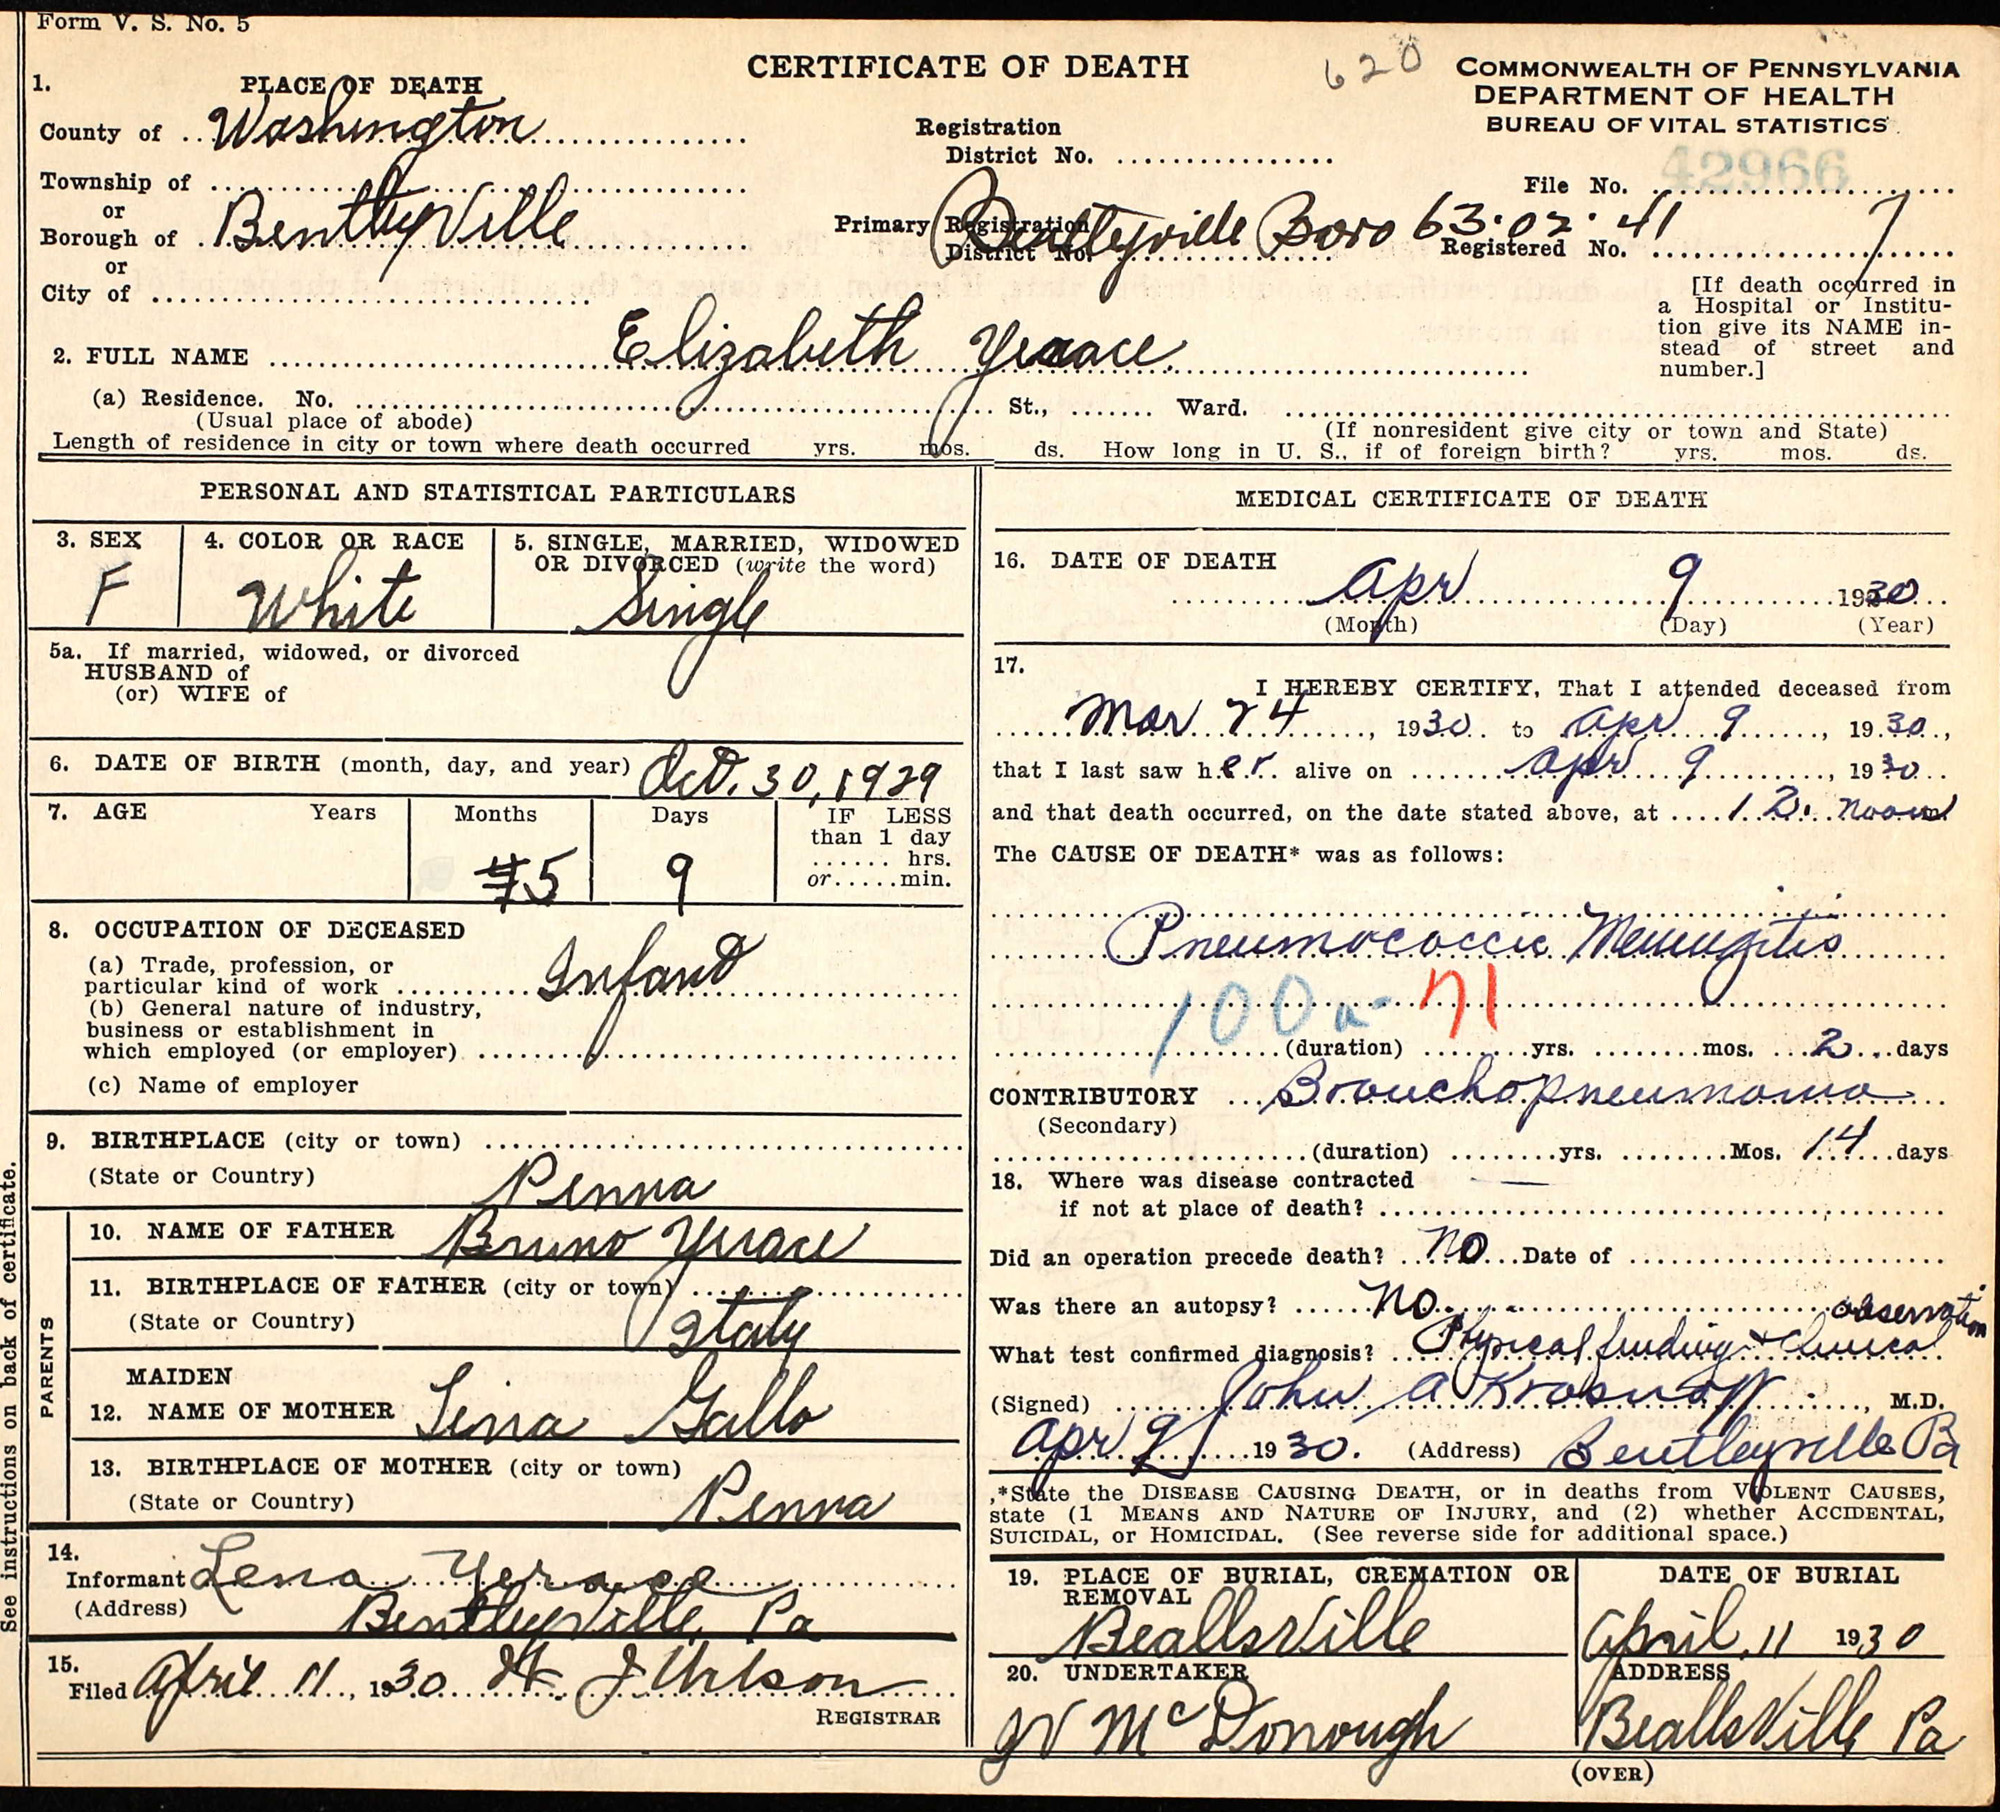 Form V. S. No. 5
CERTIFICATE OF DEATH
620
COMMONWEALTH OF PENNSYLVANIA
DEPARTMENT OF HEALTH
BUREAU OF VITAL STATISTICS
1. PLACE OF DEATH
County of Washington
Registration
District No.
42966
File No.
Township of
or
Borough of BentleyVille
Primary Registration
District No. Bentleyville Boro 63.02.41
Registered No. 7
or
City of
[If death occurred in
a Hospital or Institu-
tion give its NAME in-
stead of street and
number.]
2. FULL NAME Elizabeth Yerace
(a) Residence. No. St., Ward.
(Usual place of abode)
(If nonresident give city or town and State)
Length of residence in city or town where death occurred yrs. mos. ds. How long in U. S., if of foreign birth? yrs. mos. ds.
PERSONAL AND STATISTICAL PARTICULARS
3. SEX
F
4. COLOR OR RACE
White
5. SINGLE, MARRIED, WIDOWED
OR DIVORCED (write the word)
Single
5a. If married, widowed, or divorced
HUSBAND of
(or) WIFE of
6. DATE OF BIRTH (month, day, and year) Oct. 30, 1929
7. AGE Years Months Days IF LESS
than 1 day
hrs.
or min.
5 9
8. OCCUPATION OF DECEASED
(a) Trade, profession, or
particular kind of work Infant
(b) General nature of industry,
business or establishment in
which employed (or employer)
(c) Name of employer
9. BIRTHPLACE (city or town)
(State or Country) Penna
PARENTS
10. NAME OF FATHER Bruno Yerace
11. BIRTHPLACE OF FATHER (city or town)
(State or Country) Italy
MAIDEN
12. NAME OF MOTHER Lina Gallo
13. BIRTHPLACE OF MOTHER (city or town)
(State or Country) Penna
14.
Informant Lena Yerace
(Address) BentleyVille Pa
15.
Filed April 11, 1930 J Wilson
REGISTRAR
See instructions on back of certificate.
MEDICAL CERTIFICATE OF DEATH
16. DATE OF DEATH
Apr 9 1930
(Month) (Day) (Year)
17.
I HEREBY CERTIFY, That I attended deceased from
Mar 24, 1930 to Apr 9, 1930,
that I last saw her alive on Apr 9, 1930
and that death occurred, on the date stated above, at 12. noon m.
The CAUSE OF DEATH* was as follows:
Pneumococcic Meningitis
100a- 71
(duration) yrs. mos. 2 days
CONTRIBUTORY Bronchopneumonia
(Secondary)
(duration) yrs. Mos. 14 days
18. Where was disease contracted
if not at place of death?
Did an operation precede death? no Date of
Was there an autopsy? no
observation
What test confirmed diagnosis? Physical finding + Clinical
(Signed) John A Krosnoff, M.D.
Apr 9 1930. (Address) Bentleyville Pa
*State the DISEASE CAUSING DEATH, or in deaths from VIOLENT CAUSES,
state (1 MEANS AND NATURE OF INJURY, and (2) whether ACCIDENTAL,
SUICIDAL, or HOMICIDAL. (See reverse side for additional space.)
19. PLACE OF BURIAL, CREMATION OR
REMOVAL
Beallsville
DATE OF BURIAL
April 11 1930
20. UNDERTAKER
McDonough
ADDRESS
BeallsVille Pa
(OVER)